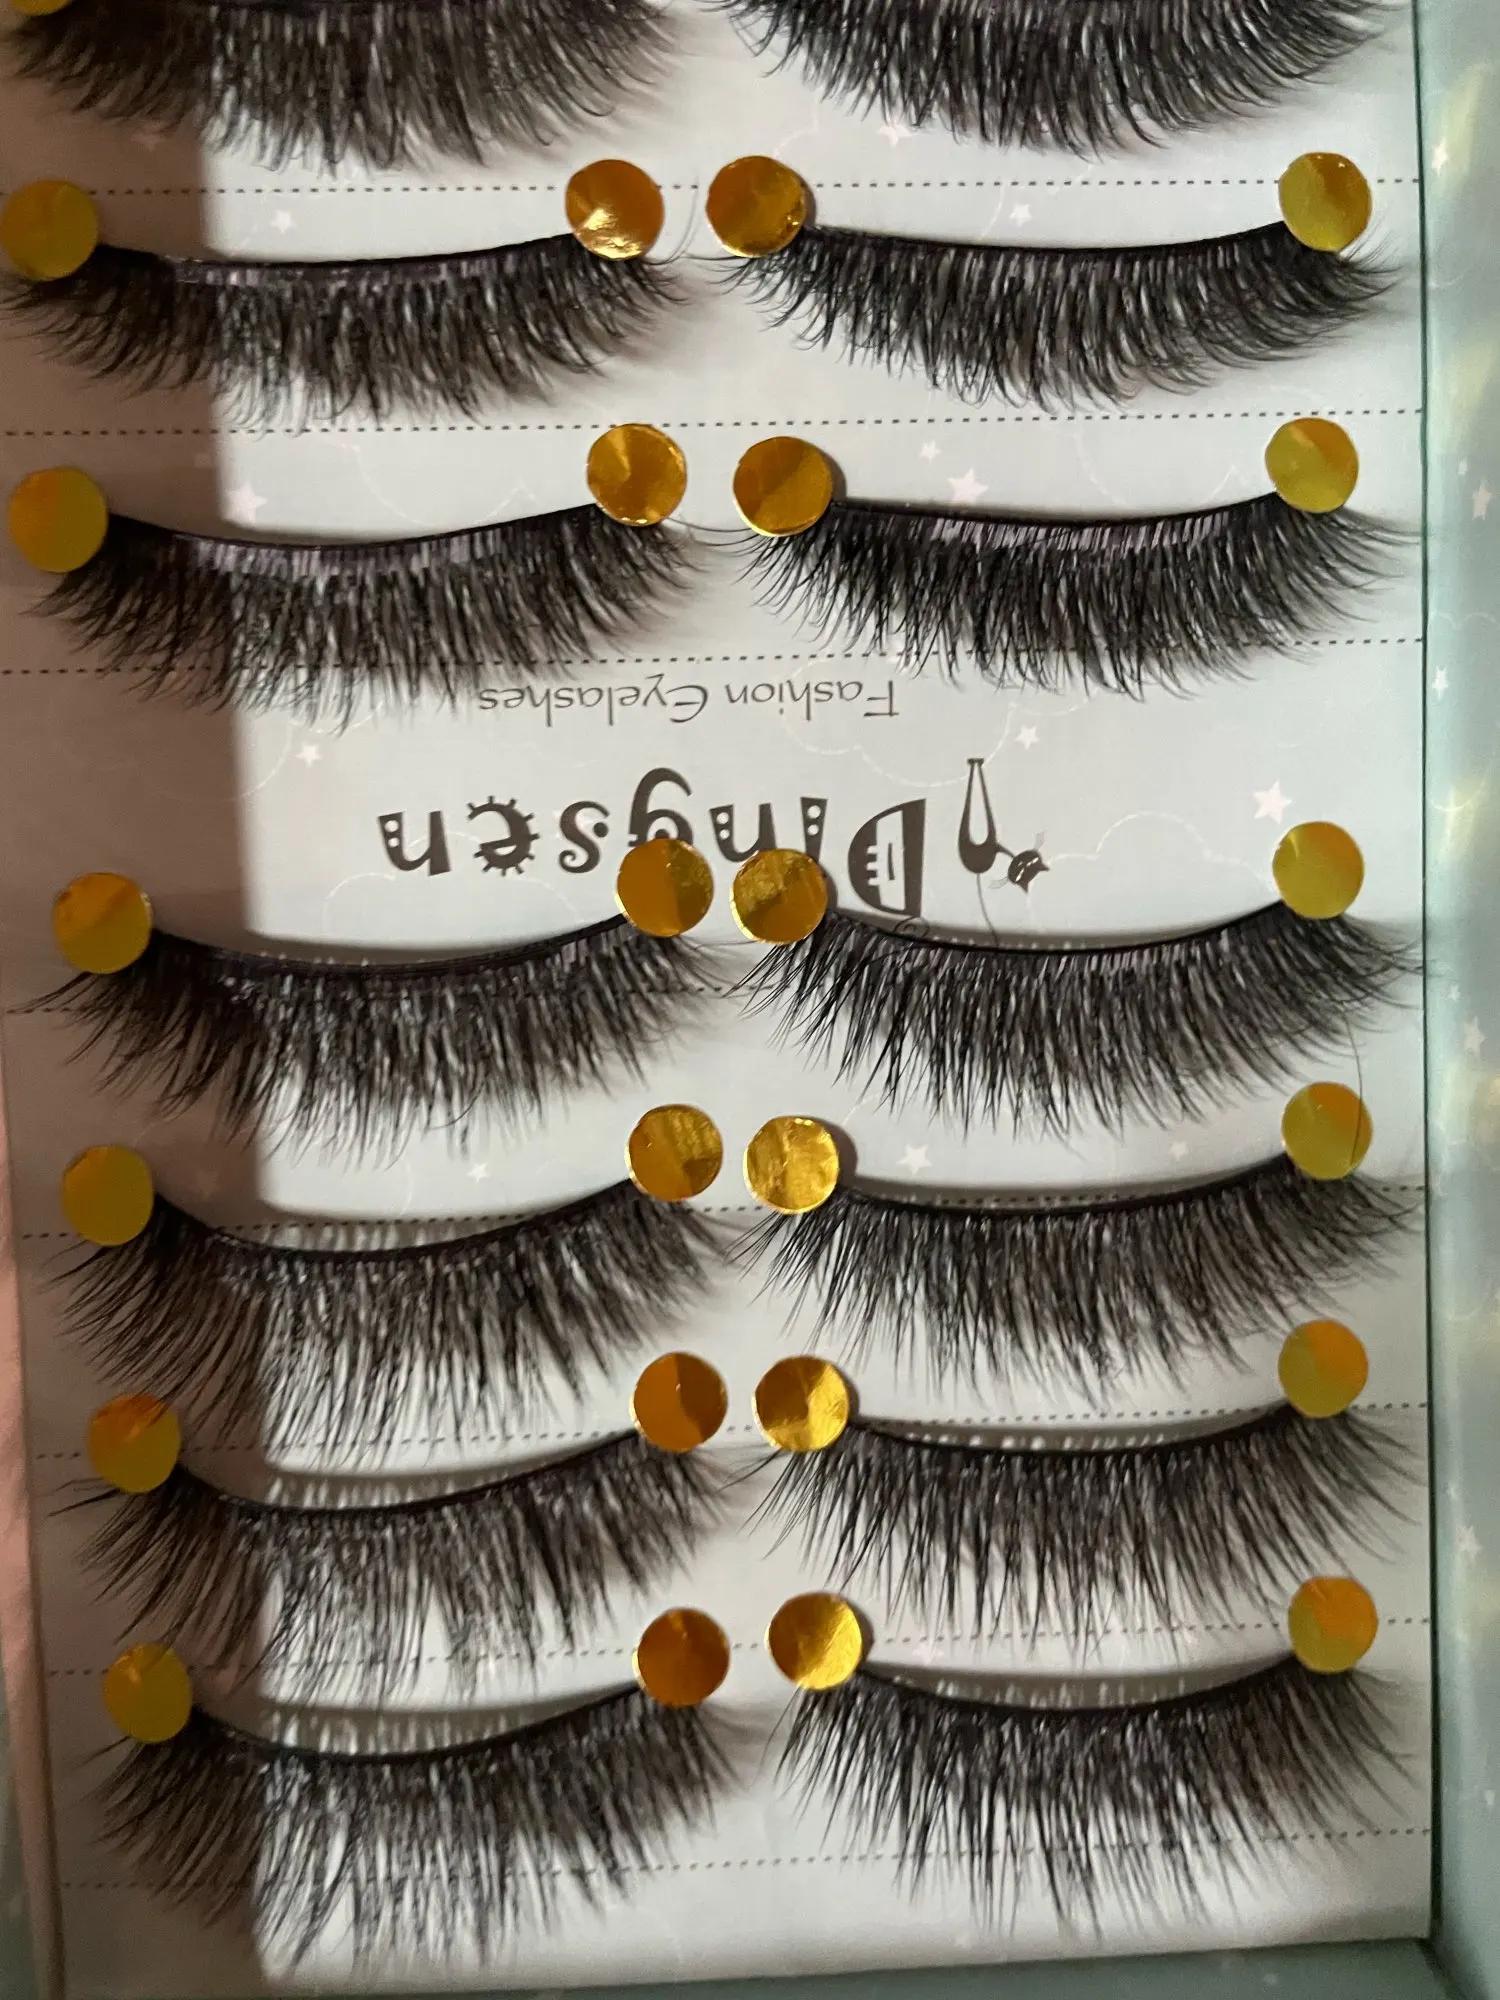 Dingsen
Fashion Eyelashes